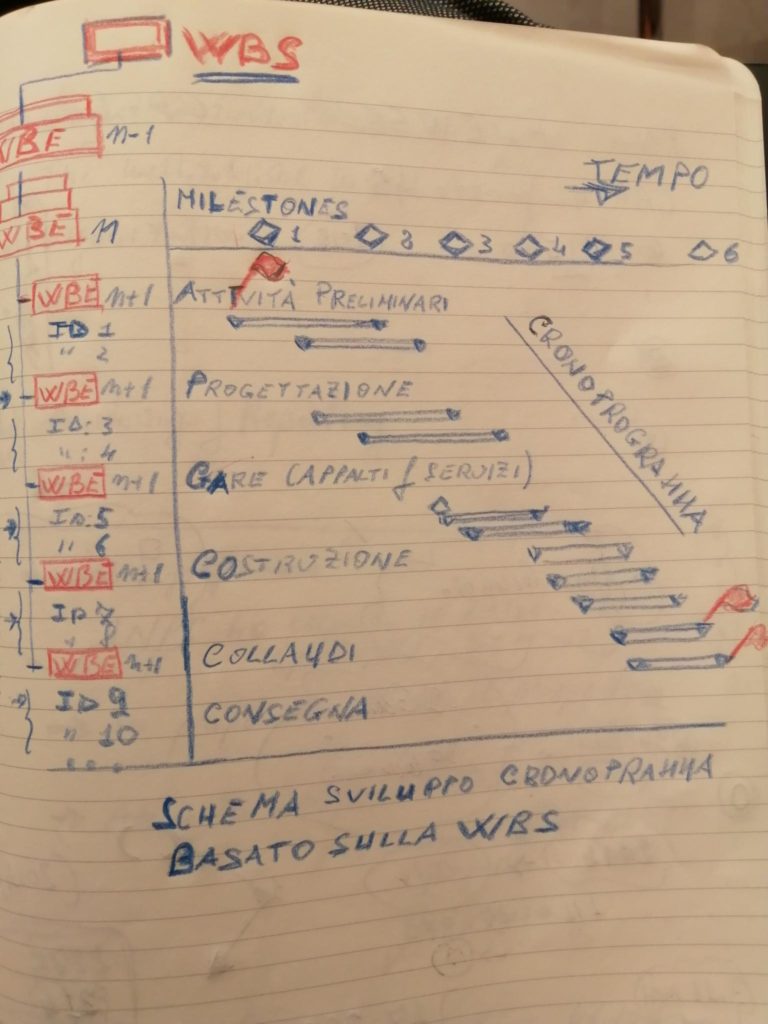 WBS
WBE n-1
TEMPO
MILESTONES
WBE n
1 2 3 4 5 6
WBE n+1 ATTIVITÀ PRELIMINARI
ID 1
" 2
CRONOPROGRAMMA
WBE n+1 PROGETTAZIONE
ID: 3
" : 4
WBE n+1 GARE (APPALTI / SERVIZI)
ID: 5
" 6
WBE n+1 COSTRUZIONE
ID 7
" 8
WBE n+1 COLLAUDI
ID 9 CONSEGNA
" 10
...
SCHEMA SVILUPPO CRONOPRAMMA
BASATO SULLA WBS